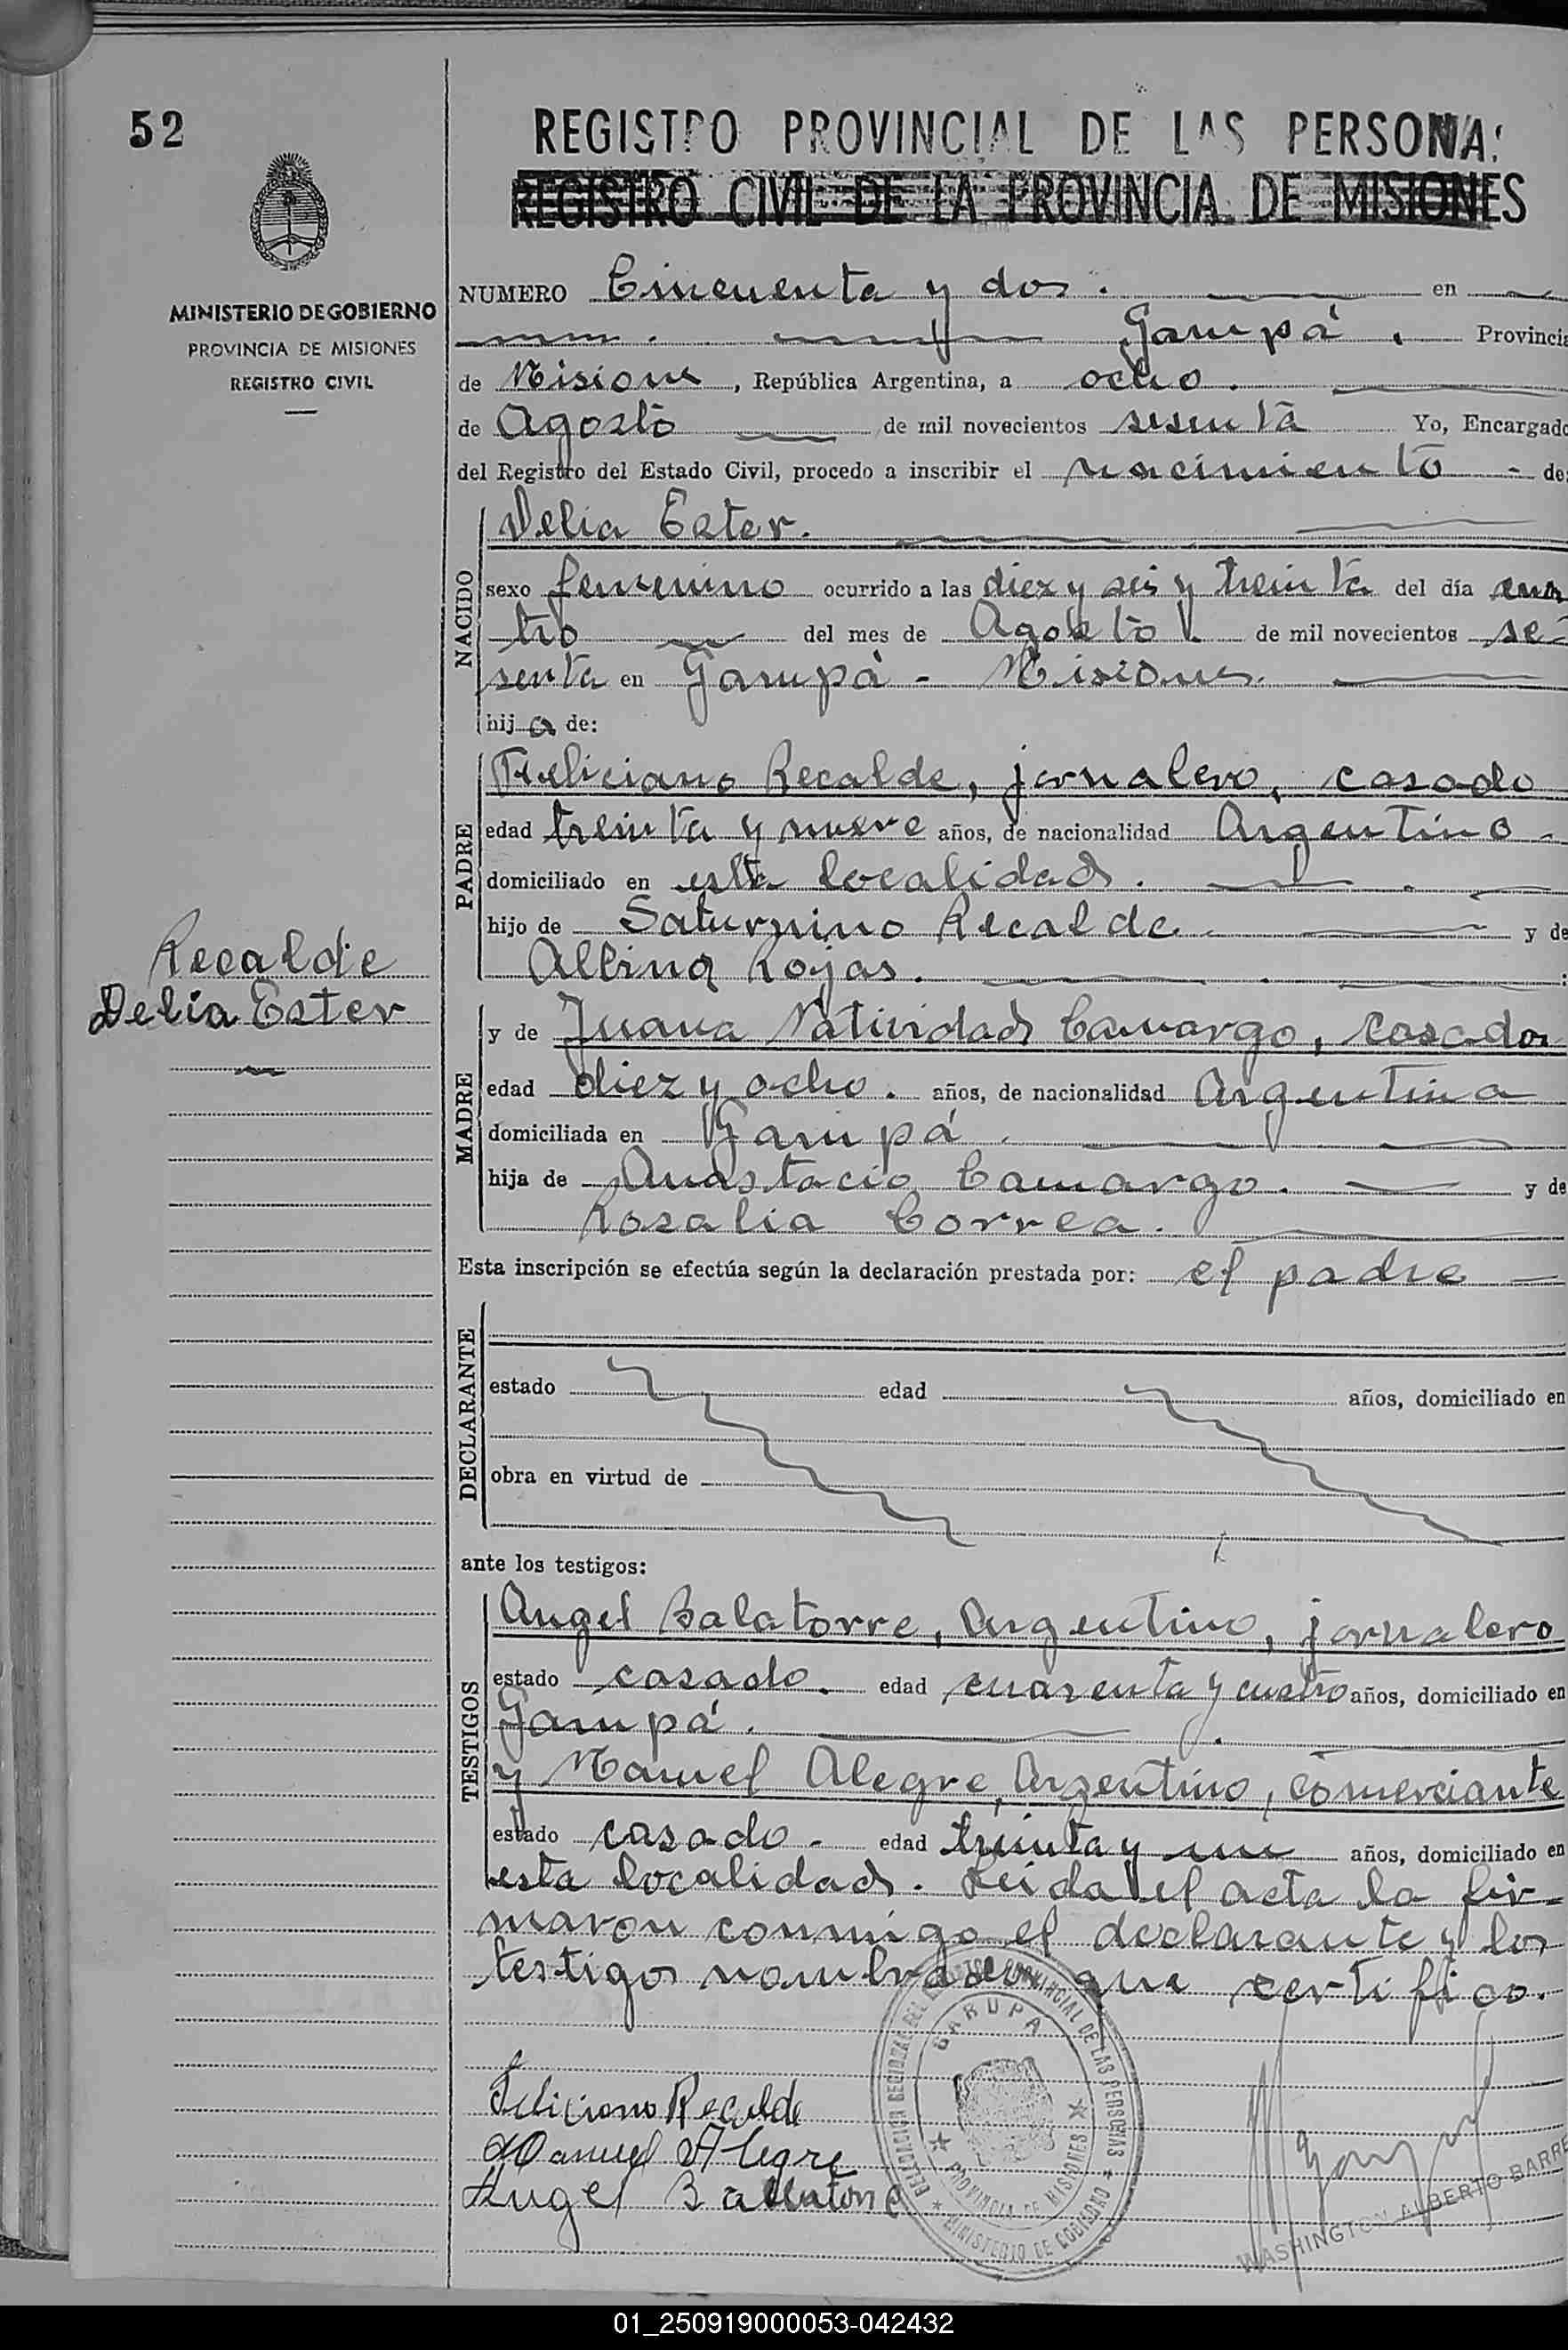 52
REGISTRO PROVINCIAL DE LAS PERSONAS
REGISTRO CIVIL DE LA PROVINCIA DE MISIONES
MINISTERIO DE GOBIERNO
PROVINCIA DE MISIONES
REGISTRO CIVIL
NUMERO Cincuenta y dos. en
Garupá. Provincia
de Misiones, República Argentina, a ocho.
de Agosto de mil novecientos sesenta Yo, Encargado
del Registro del Estado Civil, procedo a inscribir el nacimiento - de:
NACIDO
Delia Ester.
sexo femenino ocurrido a las diez y seis y treinta del día cua
tro del mes de Agosto de mil novecientos se-
senta en Garupá - Misiones.
hija de:
PADRE
Feliciano Recalde, jornalero, casado
edad treinta y nueve años, de nacionalidad Argentino -
domiciliado en esta localidad.
hijo de Saturnino Recalde - y de
Albina Rojas.
Recalde
Delia Ester
MADRE
y de Juana Natividad Camargo, casada
edad diez y ocho. años, de nacionalidad Argentina
domiciliada en Garupá.
hija de Anastacio Camargo. y de
Rosalia Correa.
Esta inscripción se efectúa según la declaración prestada por: el padre
DECLARANTE
estado edad años, domiciliado en
obra en virtud de
ante los testigos:
TESTIGOS
Angel Balatorre, Argentino, jornalero
estado casado. edad cuarenta y cuatro años, domiciliado en
Garupá.
y Manuel Alegre, Argentino, comerciante
estado casado - edad treinta y un años, domiciliado en
esta localidad. Leida el acta la fir-
maron conmigo el declarante y los
testigos nombrados que certifico.
Feliciano Recalde
Manuel Alegre
Angel Ballatorre
DELEGACION SECCIONAL DEL REGISTRO PROVINCIAL DE LAS PERSONAS
MINISTERIO DE GOBIERNO
GARUPA
PROVINCIA DE MISIONES
WASHINGTON ALBERTO BARRE
01_250919000053-042432